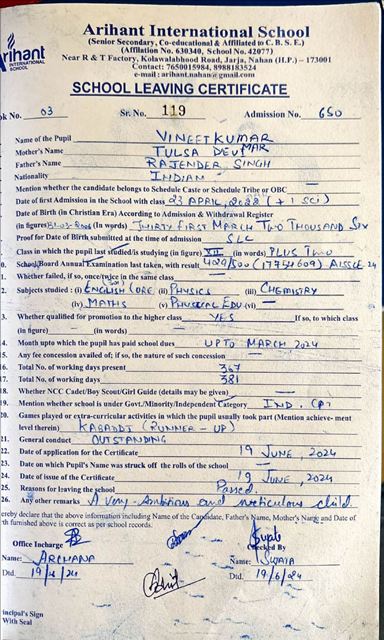 Arihant
INTERNATIONAL
SCHOOL
Arihant International School
(Senior Secondary, Co-educational & Affiliated to C. B. S. E.)
(Affiliation No. 630340, School No. 42077)
Near R & T Factory, Kolawalabhood Road, Jarja, Nahan (H.P.) – 173001
Contact: 7650015984, 8988183524
e-mail : arihant.nahan@gmail.com
SCHOOL LEAVING CERTIFICATE
ok No. 03 Sr. No. 119 Admission No. 650
Name of the Pupil VINEET KUMAR
Mother's Name TULSA DEVI
Father's Name RAJENDER SINGH
Nationality INDIAN
Mention whether the candidate belongs to Schedule Caste or Schedule Tribe or OBC —
Date of first Admission in the School with class 23 APRIL, 2022 (+1 SCI)
Date of Birth (in Christian Era) According to Admission & Withdrawal Register
(in figures) 31-03-2006 (In words) THIRTY FIRST MARCH TWO THOUSAND SIX
Proof for Date of Birth submitted at the time of admission SLC
Class in which the pupil last studied/is studying (in figure) XII (in words) PLUS TWO
0. School/Board Annual Examination last taken, with result 420/500 (17754609) AISSCE 24
1. Whether failed, if so, once/twice in the same class —
2. Subjects studied : (i) ENGLISH CORE (ii) PHYSICS (iii) CHEMISTRY
(iv) MATHS (v) PHYSICAL EDU (vi) —
3. Whether qualified for promotion to the higher class YES If so, to which class
(in figure) — (in words) —
14. Month upto which the pupil has paid school dues UPTO MARCH 2024
15. Any fee concession availed of; if so, the nature of such concession —
16. Total No. of working days present 367
17. Total No. of working days 381
18. Whether NCC Cadet/Boy Scout/Girl Guide (details may be given) —
19. Mention whether school is under Govt./Minority/Independent Category IND.
20. Games played or extra-curricular activities in which the pupil usually took part (Mention achieve- ment
level therein) KABADDI (RUNNER - UP)
21. General conduct OUTSTANDING
22. Date of application for the Certificate 19 JUNE, 2024
23. Date on which Pupil's Name was struck off the rolls of the school —
24. Date of issue of the Certificate 19 JUNE, 2024
25. Reasons for leaving the school Passed.
26. Any other remarks A very ambitious and meticulous child.
ereby declare that the above information including Name of the Candidate, Father's Name, Mother's Name and Date of
th furnished above is correct as per school records.
Office Incharge Checked By
Name: ARCHANA Name: SUJATA
Dtd. 19/6/24 Dtd. 19/6/24
incipal's Sign
With Seal